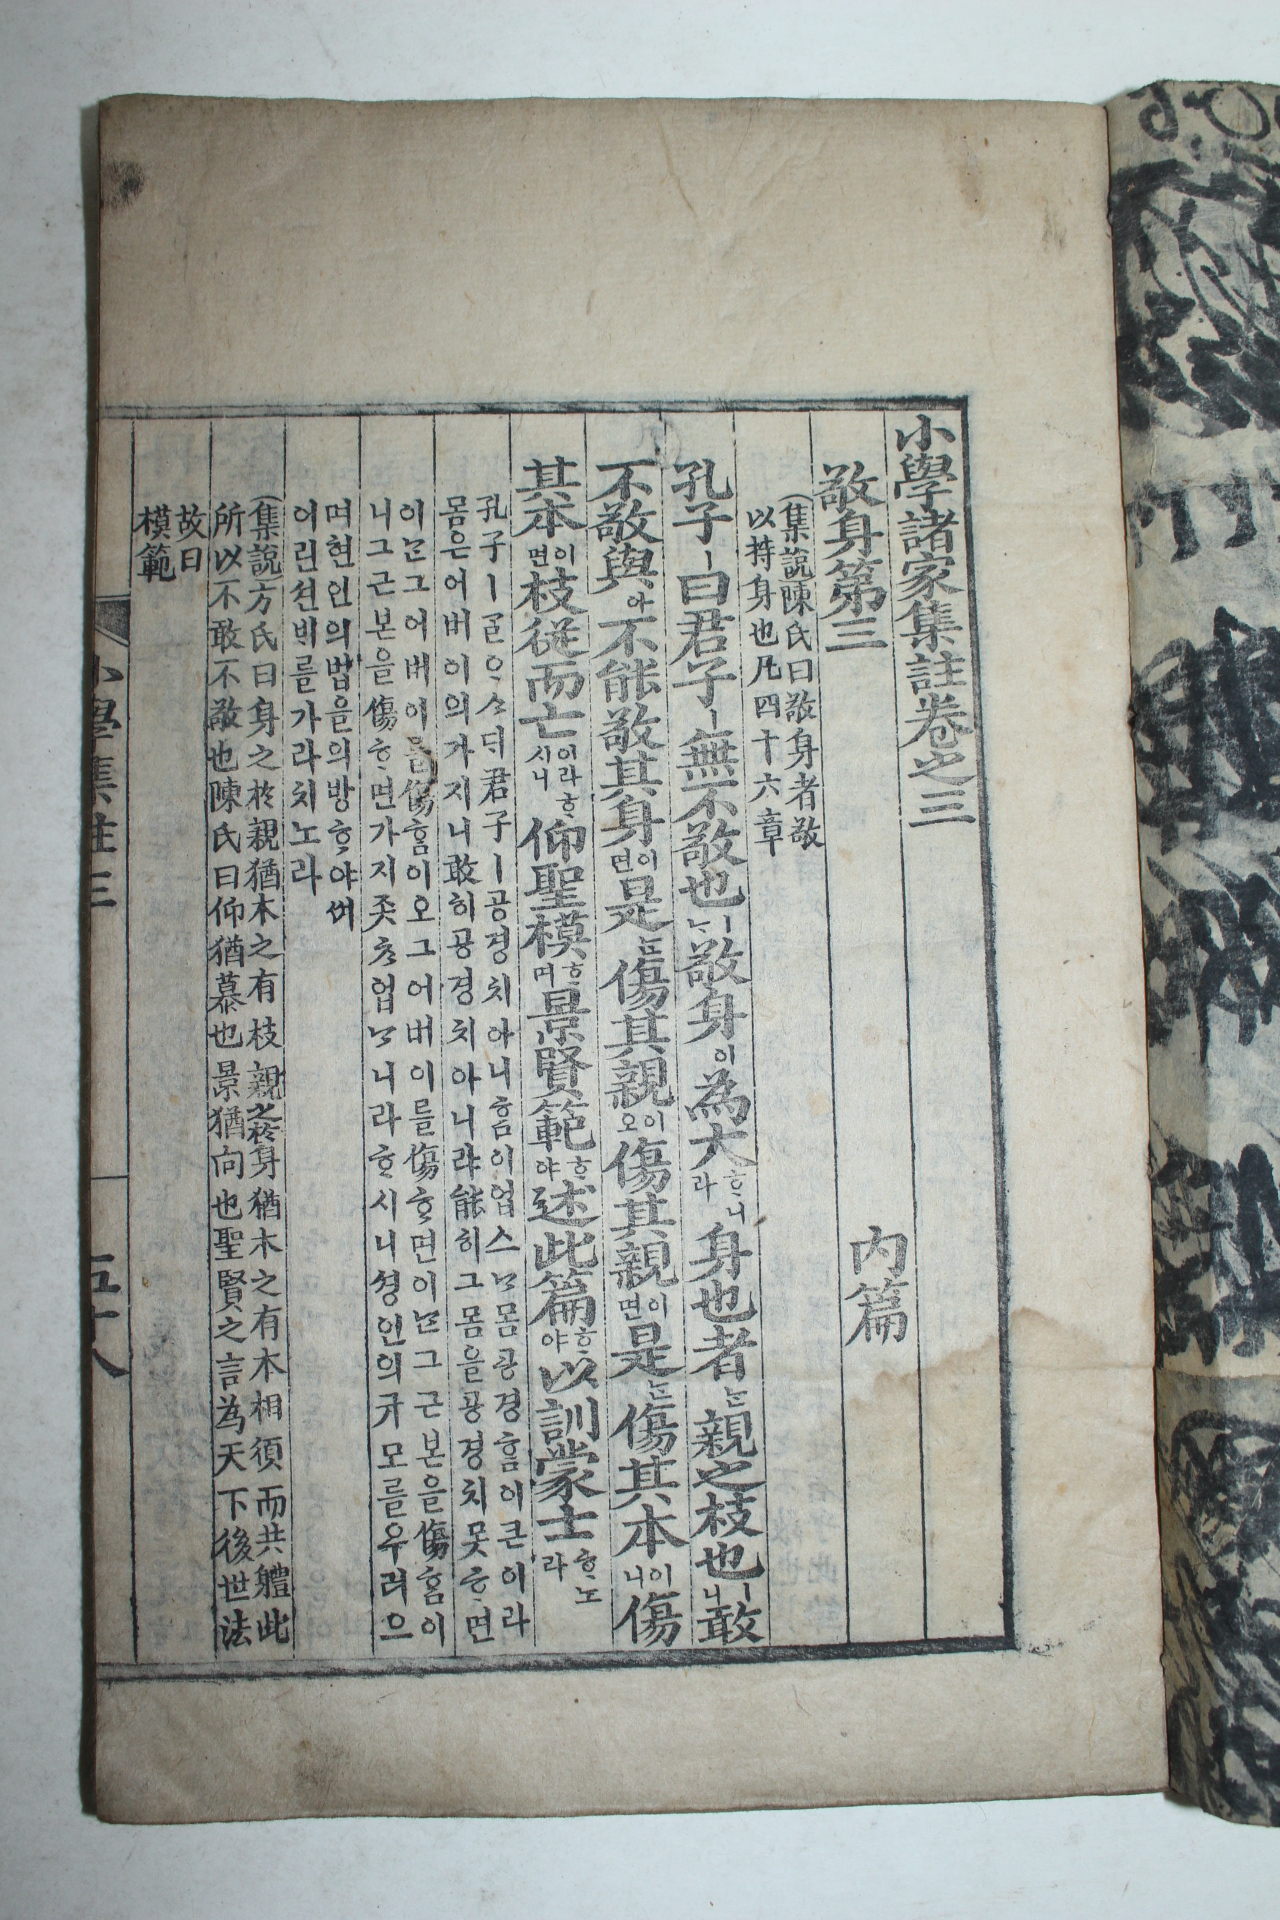 小學諸家集註卷之三
敬身第三 內篇
(集說)陳氏曰敬身者敬
以持身也凡四十六章
孔子ㅣ曰君子ㅣ無不敬也ㅣ나敬身이爲大ᄒᆞ니라身也者ᄂᆞᆫ親之枝也ㅣ니敢
不敬與아不能敬其身이면是ᄂᆞᆫ傷其親이오傷其親이면是ᄂᆞᆫ傷其本이니傷
其本이면枝從而亡이라ᄒᆞ시니仰聖模ᄒᆞ며景賢範ᄒᆞ야述此篇ᄒᆞ야以訓蒙士ᄒᆞ노라
孔子ㅣᄀᆞᆯᄋᆞ샤ᄃᆡ君子ㅣ공경치아니ᄒᆞᆷ이업스나몸공경ᄒᆞᆷ이큰이라
몸은어버이의가지니敢히공경치아니랴能히그몸을공경치못ᄒᆞ면
이ᄂᆞᆫ그어버이를傷ᄒᆞᆷ이오그어버이를傷ᄒᆞ면이ᄂᆞᆫ그근본을傷ᄒᆞᆷ이
니그근본을傷ᄒᆞ면가지좃ᄎᆞ업ᄂᆞ니라ᄒᆞ시니셩인의규모를우러으
며현인의법을의방ᄒᆞ야써
어린션ᄇᆡ를가라치노라
(集說)方氏曰身之於親猶木之有枝親之於身猶木之有本相須而共軆此
所以不敢不敬也陳氏曰仰猶慕也景猶向也聖賢之言爲天下後世法
故曰
模範
小學集註三 五十八